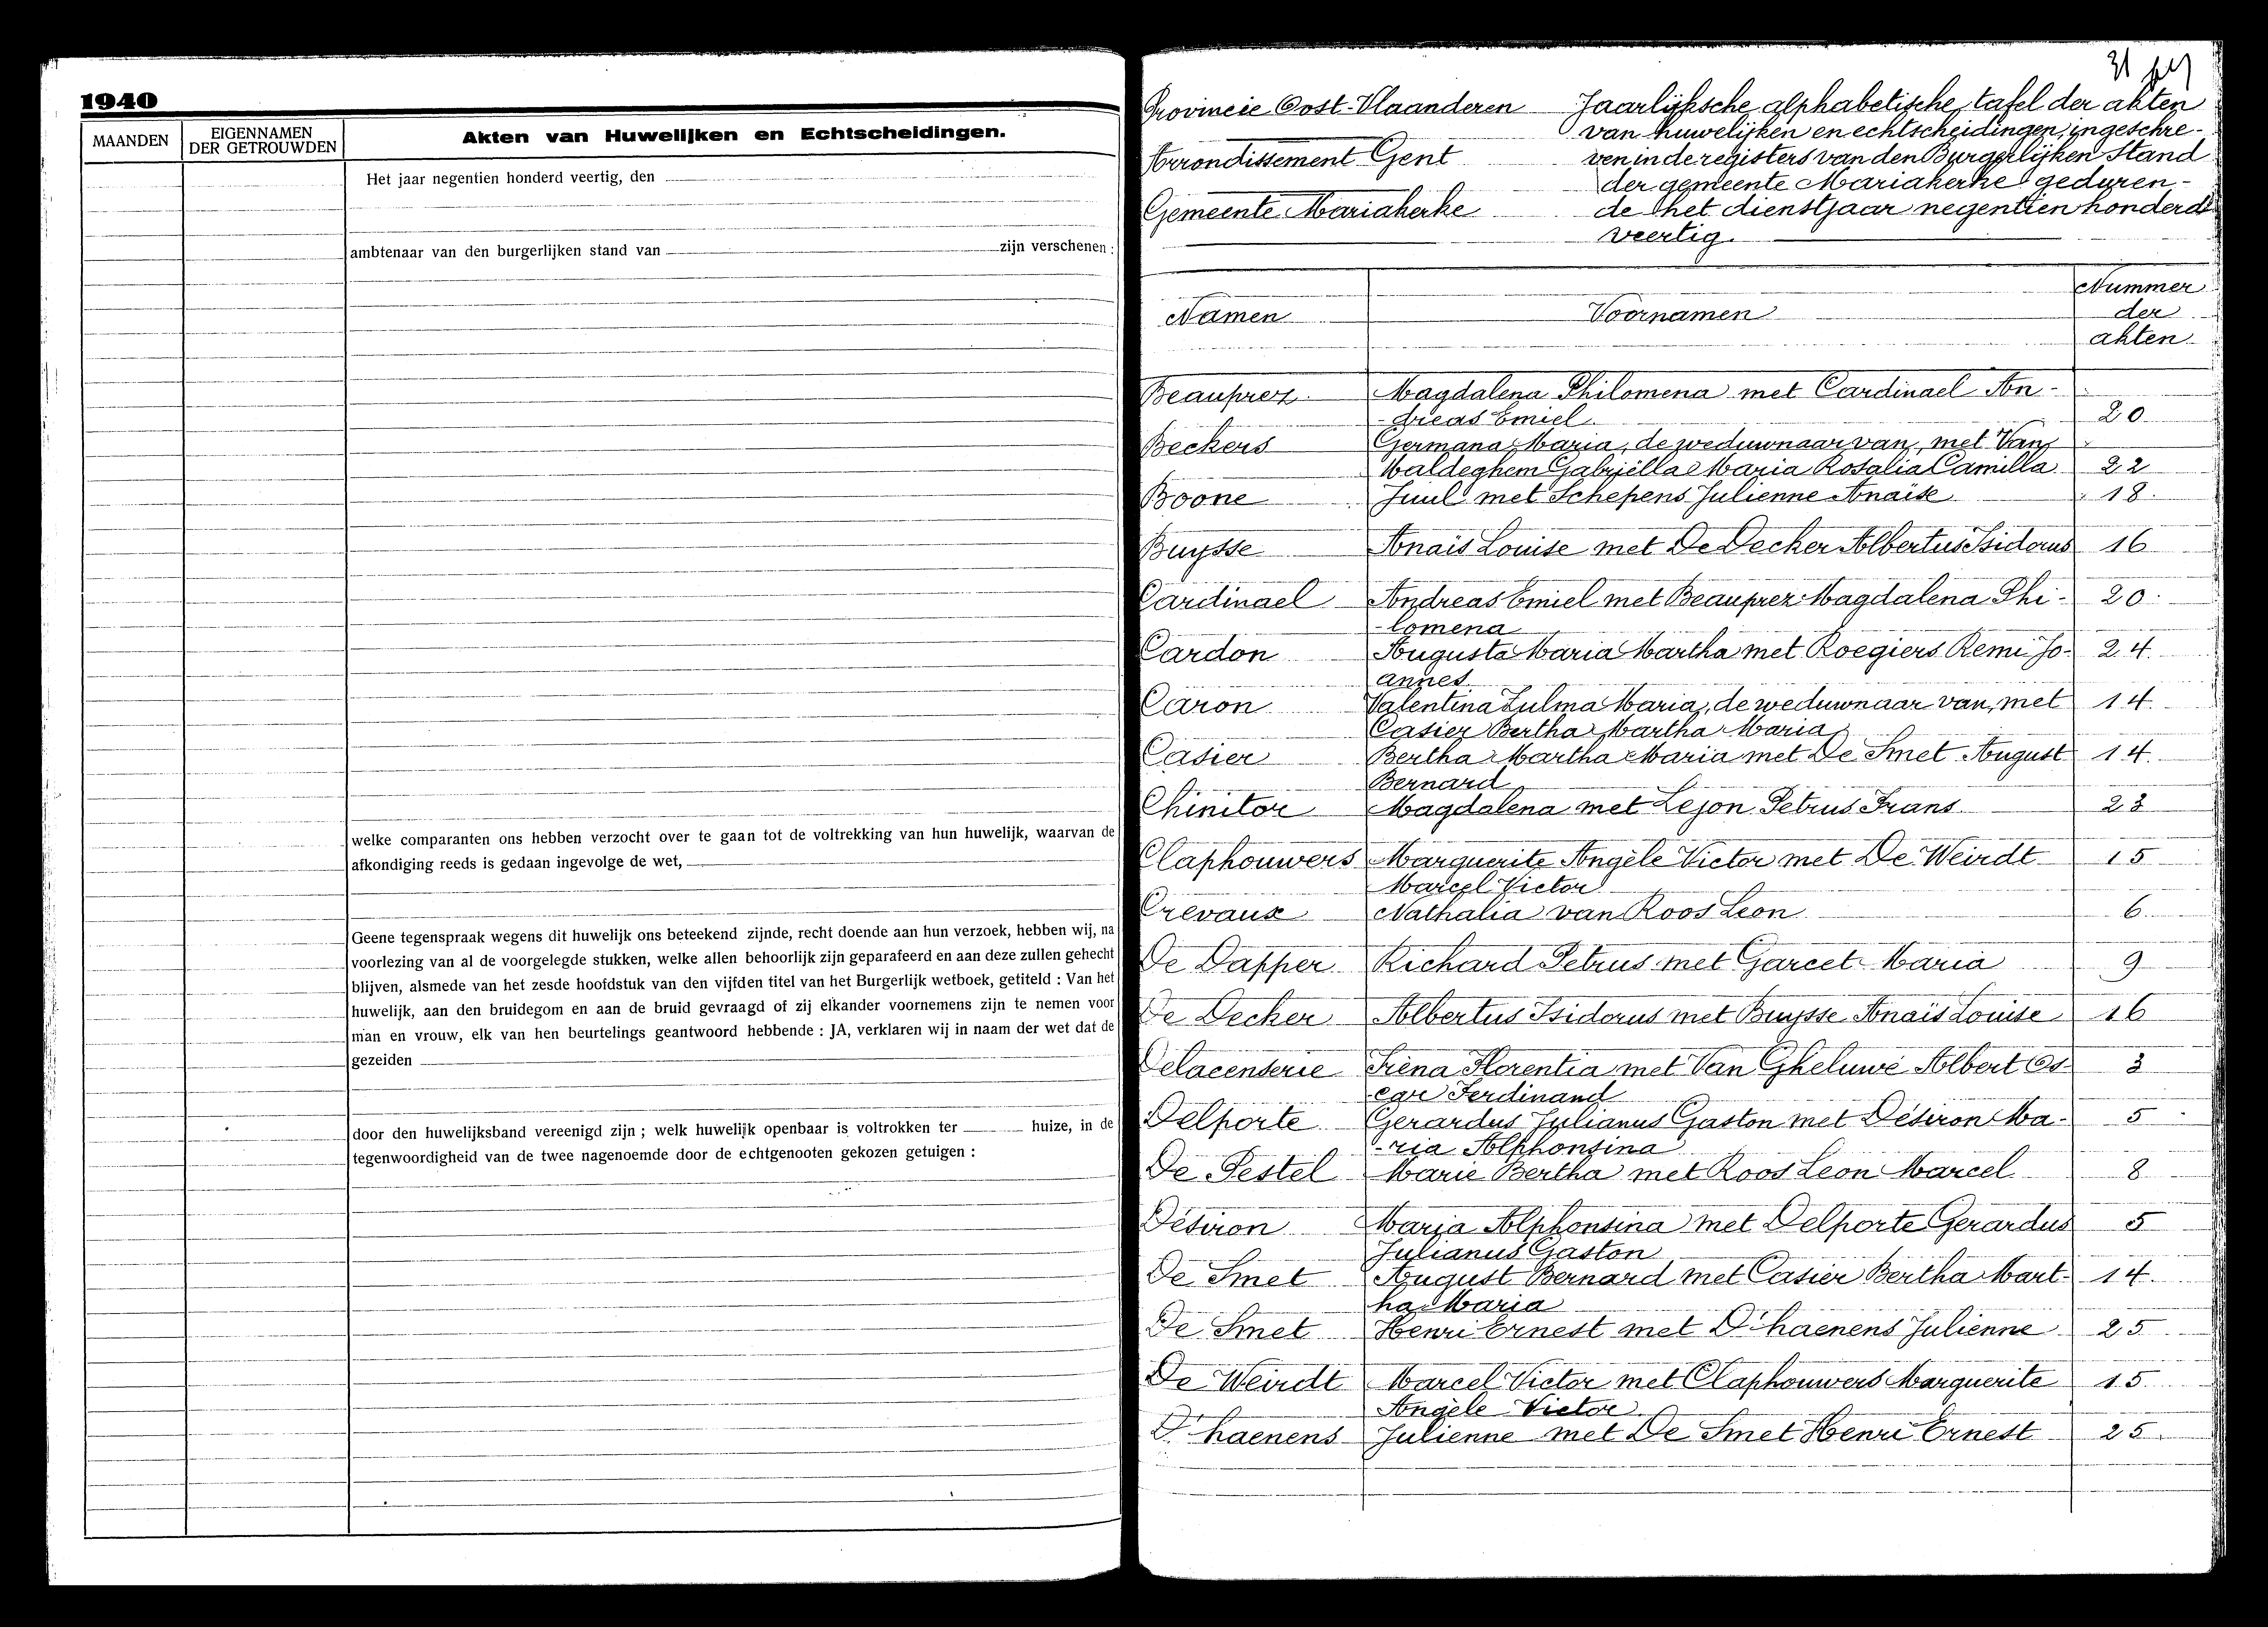 1940
MAANDEN
EIGENNAMEN
DER GETROUWDEN
Akten van Huwelijken en Echtscheidingen.
Het jaar negentien honderd veertig, den
ambtenaar van den burgerlijken stand van zijn verschenen :
welke comparanten ons hebben verzocht over te gaan tot de voltrekking van hun huwelijk, waarvan de
afkondiging reeds is gedaan ingevolge de wet,
Geene tegenspraak wegens dit huwelijk ons beteekend zijnde, recht doende aan hun verzoek, hebben wij, na
voorlezing van al de voorgelegde stukken, welke allen behoorlijk zijn geparafeerd en aan deze zullen gehecht
blijven, alsmede van het zesde hoofdstuk van den vijfden titel van het Burgerlijk wetboek, getiteld : Van het
huwelijk, aan den bruidegom en aan de bruid gevraagd of zij elkander voornemens zijn te nemen voor
man en vrouw, elk van hen beurtelings geantwoord hebbende : JA, verklaren wij in naam der wet dat de
gezeiden
door den huwelijksband vereenigd zijn ; welk huwelijk openbaar is voltrokken ter huize, in de
tegenwoordigheid van de twee nagenoemde door de echtgenooten gekozen getuigen :
31
Provincie Oost-Vlaanderen
Arrondissement Gent
Gemeente Mariakerke
Jaarlijksche alphabetische tafel der akten
van huwelijken en echtscheidingen, ingeschre-
ven in de registers van den Burgerlijken Stand
der gemeente Mariakerke geduren-
de het dienstjaar negentien honderd
veertig.
Namen Voornamen Nummer
der
akten
Beauprez Magdalena Philomena met Cardinael An-
-dreas Emiel 20
Beckers Germana Maria, de weduwnaar van, met Van
Waldeghem Gabriëlla Maria Rosalia Camilla 22
Boone Juul met Schepens Julienne Anaïse 18
Buysse Anaïs Louise met De Decker Albertus Isidorus 16
Cardinael Andreas Emiel met Beauprez Magdalena Phi- 20
-lomena
Cardon Augusta Maria Martha met Roegiers Remi Jo- 24
annes
Caron Valentina Zulma Maria, de weduwnaar van, met 14
Casier Bertha Martha Maria
Casier Bertha Martha Maria met De Smet August 14
Bernard
Chinitor Magdalena met Lejon Petrus Frans 23
Claphouwers Marguerite Angèle Victor met De Weirdt 15
Marcel Victor
Crevaux Nathalia van Roos Leon 6
De Dapper Richard Petrus met Garcet Maria 9
De Decker Albertus Isidorus met Buysse Anaïs Louise 16
Delacenserie Irèna Florentia met Van Gheluwe Albert Os- 3
car Ferdinand
Delporte Gerardus Julianus Gaston met Désiron Ma- 5
-ria Alphonsina
De Pestel Marie Bertha met Roos Leon Marcel 8
Désiron Maria Alphonsina met Delporte Gerardus 5
Julianus Gaston
De Smet August Bernard met Casier Bertha Mart- 14
ha Maria
De Smet Henri Ernest met D'haenens Julienne 25
De Weirdt Marcel Victor met Claphouwers Marguerite 15
Angèle Victor
D'haenens Julienne met De Smet Henri Ernest 25